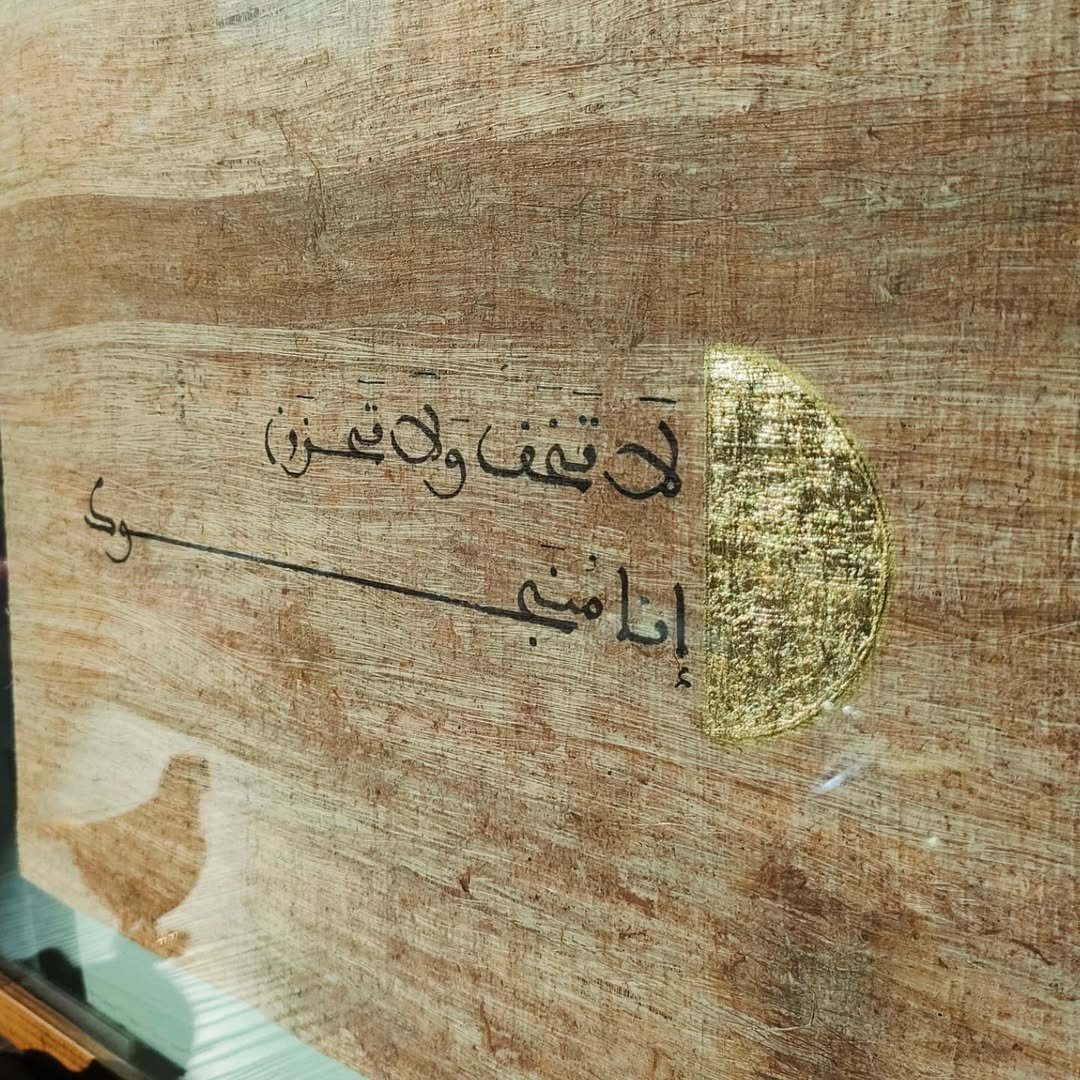 لَا تَخَفْ وَلَا تَحْزَن
إنا مُنَجوك